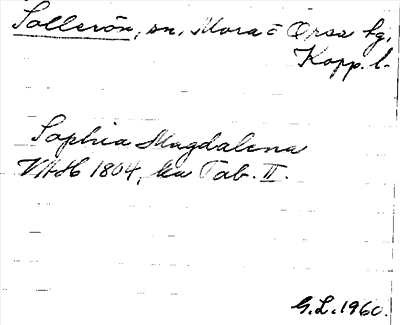 Sollerön, sn, Mora o Orsa tg.
Kopp. l.
Sophia Magdalena
VAH 1804, ka Tab. II.
G.L. 1960.